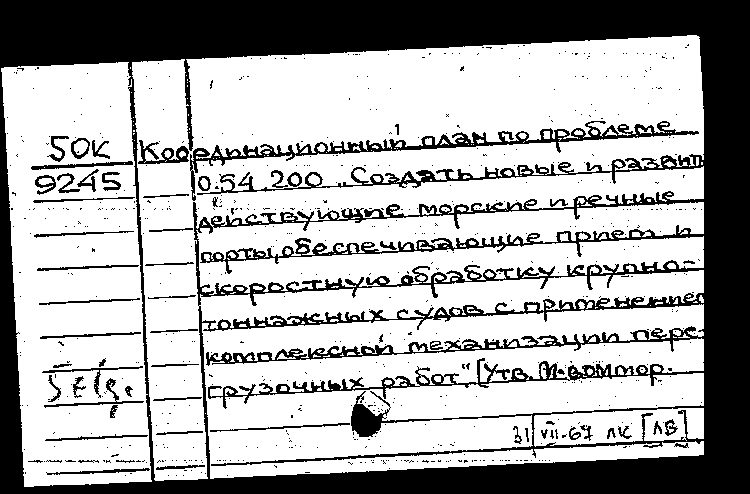 50К Координационный план по проблеме
9245 0.54.200 „Создать новые и развить
действующие морские и речные
порты, обеспечивающие прием и
скоростную обработку крупно-
тоннажных судов с применением
комплексной механизации пере-
грузочных работ" [Утв. М-вом мор.
31 VII-67 ЛК [ЛВ]